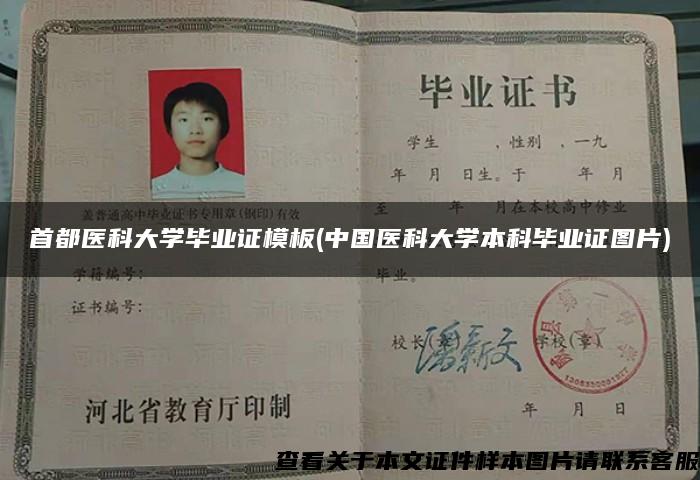 毕业证书
学生 ,性别 ,一九
年 月 日生。于 年 月
至 年 月在本校高中修业
毕业。
校长(章)
学校(章)
年 月 日
盖普通高中毕业证书专用章(钢印)有效
学籍编号:
证书编号:
河北省教育厅印制
首都医科大学毕业证模板(中国医科大学本科毕业证图片)
查看关于本文证件样本图片请联系客服